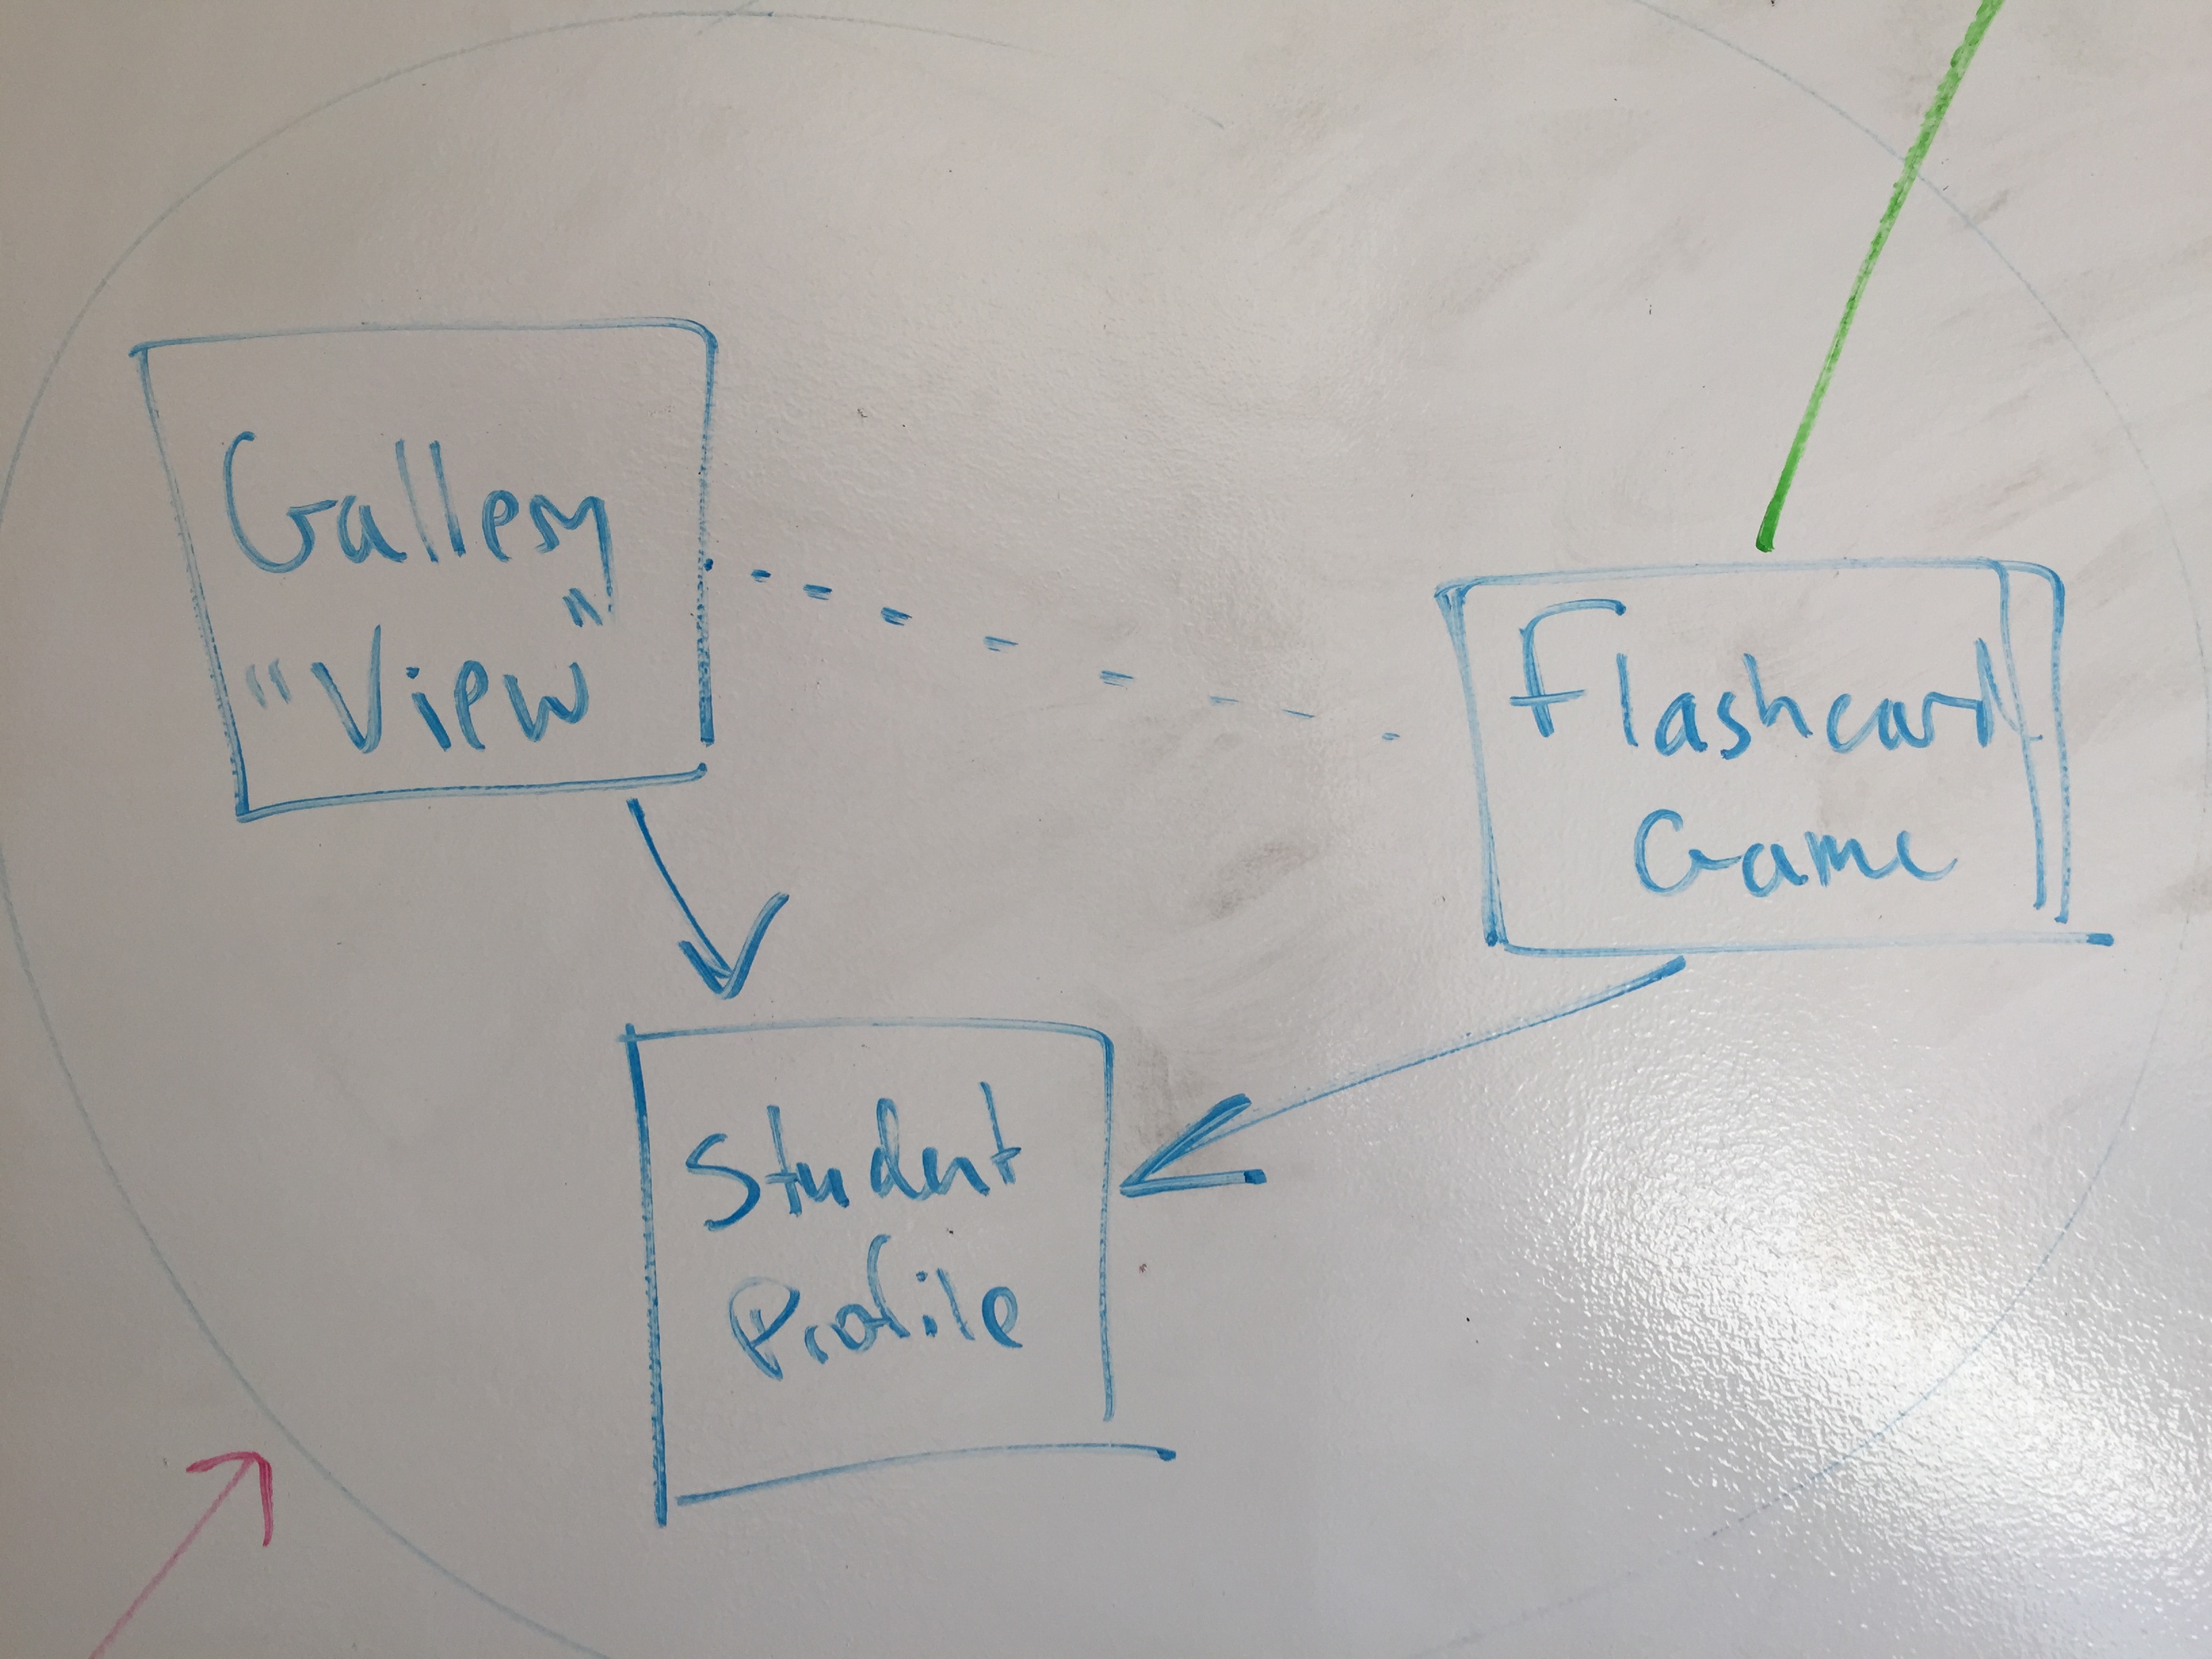 Gallery
"View"
Flashcard
Game
Student
Profile